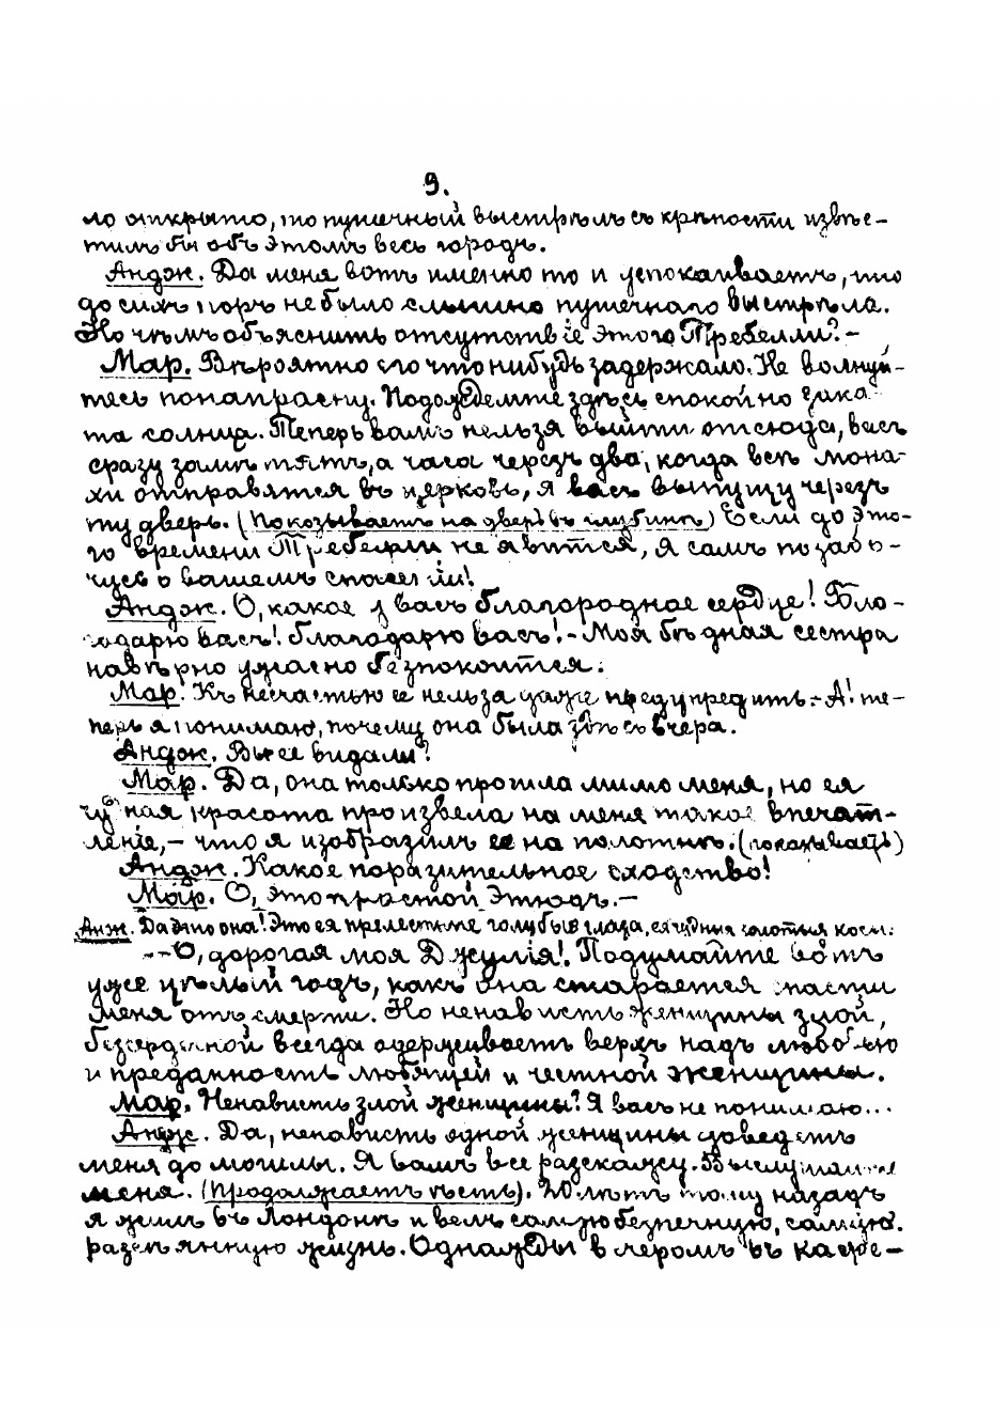 9.
ло открыто, то пушечный выстрѣлъ съ крѣпости извѣс-
тилъ бы объ этомъ весь городъ.
Андж. Да меня вотъ именно то и успокаиваетъ, что
до сихъ поръ не было слышно пушечнаго выстрѣла.
Но чѣмъ объяснить отсутствіе этого Требелли? –
Мар. Вѣроятно его что нибудь задержало. Не волнуй-
тесь понапрасну. Подождемте здѣсь спокойно зака-
та солнца. Теперь вамъ нельзя выйти отсюда, васъ
сразу замѣтятъ, а часа черезъ два, когда всѣ мона-
хи отправятся въ церковь, я васъ выпущу черезъ
ту дверь. (Показываетъ на дверь въ глубинѣ) Если до это-
го времени Требелли не явится, я самъ позабо-
чусь о вашемъ спасеніи!
Андж. О, какое у васъ благородное сердце! Бла-
годарю васъ! благодарю васъ! – Моя бѣдная сестра
навѣрно ужасно безпокоится.
Мар. Къ несчастью ее нельзя даже предупредить. – А! те-
перь я понимаю, почему она была здѣсь вчера.
Андж. Вы ее видали?
Мар. Да, она только прошла мимо меня, но ея
чудная красота произвела на меня такое впечат-
леніе, – что я изобразилъ ее на полотнѣ. (показываетъ)
Андж. Какое поразительное сходство!
Мар. О, это простой этюдъ. –
Анж. Да это она! Это ея прелестные голубые глаза, ея чудныя золотыя косы.
-- О, дорогая моя Джулія! Подумайте вотъ
уже цѣлый годъ, какъ она старается спасти
меня отъ смерти. Но ненависть женщины злой,
безсердечной всегда одерживаетъ верхъ надъ любовью
и преданность любящей и честной женщины.
Мар. Ненависть злой женщины? Я васъ не понимаю...
Андж. Да, ненависть одной женщины доведетъ
меня до могилы. Я вамъ все разскажу. Выслушайте
меня. (Продолжаетъ ѣсть). лѣтъ тому назадъ
я жилъ въ Лондонѣ и велъ самую безпечную, самую
разсѣянную жизнь. Однажды вечеромъ въ кафе-